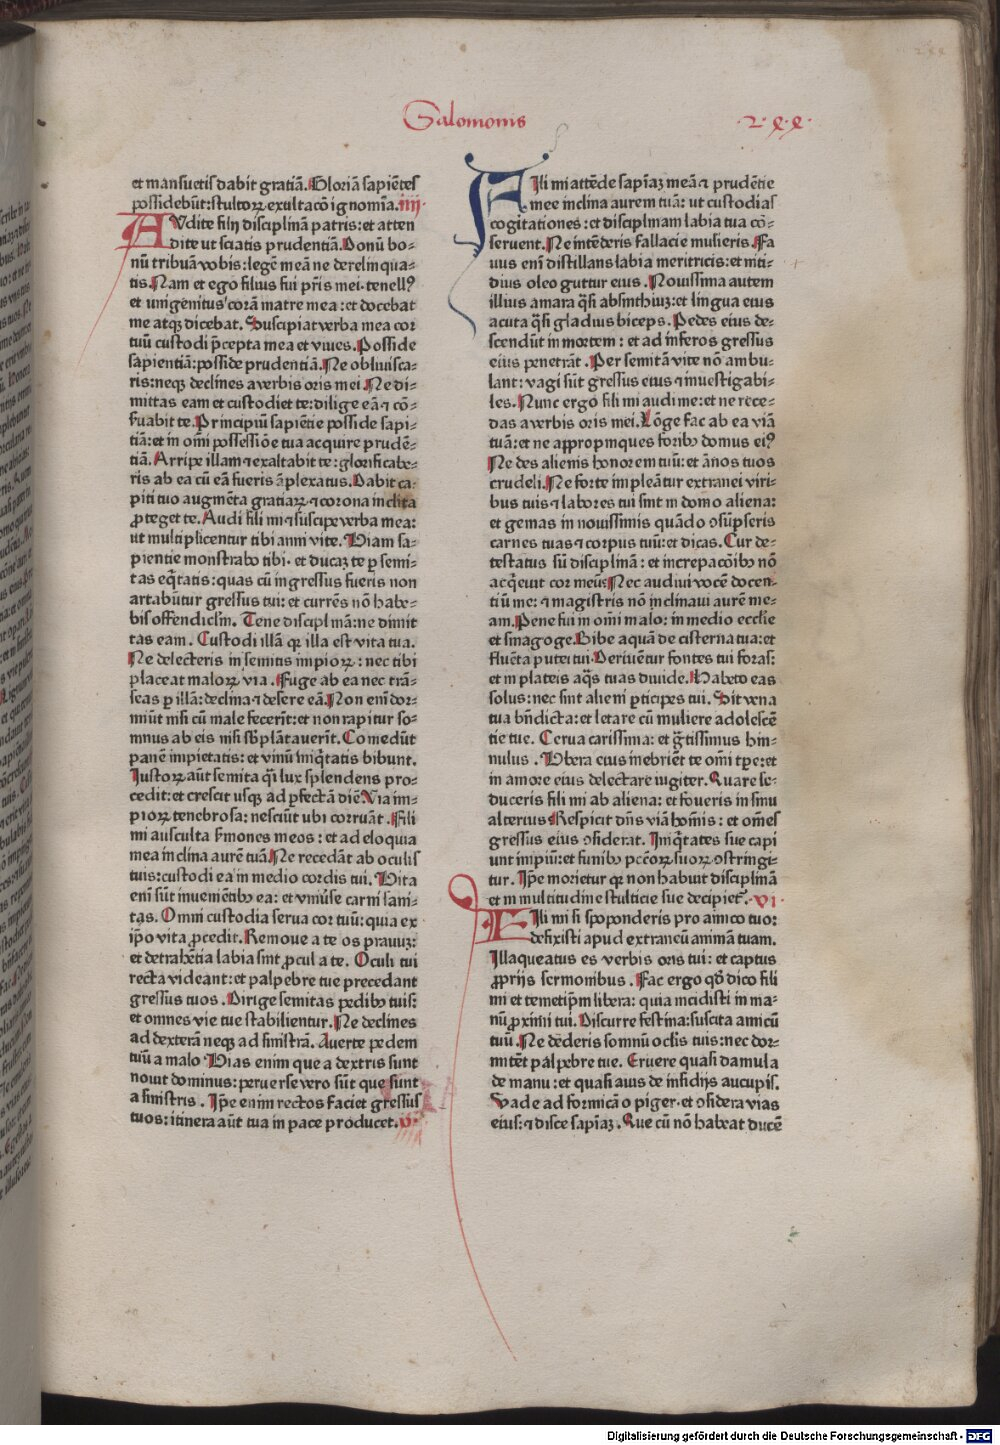 Salomonis
·2·xx·
et mansuetis dabit gratiā. Gloriā sapiētes
possidebūt: stultoꝝ exaltacō ignomīa. iiii·
AUdite filij disciplinā patris: et atten
dite ut sciatis prudentiā. Donū bo-
nū tribuā vobis: legē meā ne derelinqua-
tis. Nam et ego filius fui pr̄is mei· tenellꝰ
et unigenitus corā matre mea: et docebat
me atqꝫ dicebat. Suscipiat verba mea cor
tuū custodi p̄cepta mea et vives. Posside
sapientiā: posside prudentiā. Ne obliuisca-
ris: neqꝫ declines a verbis oris mei. Ne di-
mittas eam et custodiet te: dilige eā ⁊ cō-
ſuabit te. Principiū sapiētie posside sapi-
tiā: et in om̄i possessiōe tua acquire prudē-
tiā. Arripe illam ⁊ exaltabit te: glorificabe-
ris ab ea cū eā fueris āplexatus. Dabit ca-
piti tuo augmēta gratiaꝝ ⁊ corona inclita
proteget te. Audi fili mi ⁊ suscipe verba mea:
ut multiplicentur tibi anni vite. Viam sa-
pientie monstrabo tibi· et ducaꝫ te ꝑ semi-
tas eq̄tatis: quas cū ingressus fueris non
artabūtur gressus tui: et currēs nō habe-
bis offendiclm̄. Tene disciplmā: ne dimit
tas eam. Custodi illā qꝛ illa est vita tua.
Ne delecteris in semitis impioꝝ: nec tibi
placeat maloꝝ via. Fuge ab ea nec trā-
seas ꝑ illā: declina ⁊ desere eā. Non eni dor-
miūt nisi cū male fecerīt: et non rapitur so-
mnus ab eis nisi sb̄plātauerīt. Comedūt
panē impietatis: et vinū iniq̄tatis bibunt.
Iustoꝝ aūt semita q̄i lux splendens pro-
cedit: et crescit usqꝫ ad ꝑfectā diē. Via im-
pioꝝ tenebrosa: nesciūt ubi corruāt. Fili
mi ausculta ſmones meos: et ad eloquia
mea inclina aurē tuā. Ne recedāt ab oculis
tuis: custodi ea in medio cordis tui. Vita
eni sūt inuenientibꝰ ea: et vniuse carni sani-
tas. Omni custodia serua cor tuū: quia ex
ip̄o vita procedit. Remoue a te os prauuꝫ:
et detrahētia labia sint procul a te. Oculi tui
recta videant: et palpebre tue precedant
gressus tuos. Dirige semitas pedibꝰ tuis:
et omnes vie tue stabilientur. Ne declines
ad dexterā neqꝫ ad sinistrā. Auerte pedem
tuū a malo· Vias enim que a dextris sunt
nouit dominus: peruerse vero sūt que sunt
a sinistris. Ip̄e enim rectos faciet gressus
tuos: itinera aūt tua in pace producet. v·
FIli mi attēde sapiaꝫ meā ⁊ prudētie
mee inclina aurem tuā: ut custodias
cogitationes: et disciplinam labia tua cō-
seruent. Ne intēderis fallacie mulieris. Fa
uus eni distillans labia meritricis: et niti-
dius oleo guttur eius. Nouissima autem
illius amara q̄si absinthiuꝫ: et lingua eius
acuta q̄si gladius biceps. Pedes eius de-
scendūt in mortem: et ad inferos gressus
eius penetrāt. Per semitā vite nō ambu-
lant: vagi sūt gressus eius ⁊ inuestigabi-
les. Nunc ergo fili mi audi me: et ne rece-
das a verbis oris mei. Lōge fac ab ea viā
tuā: et ne appropinques foribꝰ domus eiꝰ
Ne des alienis honorem tuū: et ānos tuos
crudeli. Ne forte impleātur extranei viri-
bus tuis ⁊ labores tui sint in domo aliena:
et gemas in nouissimis quādo ꝯsūpseris
carnes tuas ⁊ corpus tuū: et dicas. Cur de-
testatus sū disciplinā: et increpacōibꝰ nō
acq̄euit cor meū: Nec audiui vocē docen-
tiū me: ⁊ magistris nō inclinaui aurē me-
am. Pene fui in om̄i malo: in medio ecclie
et sinagoge. Bibe aquā de cisterna tua: et
fluēta putei tui. Deriuētur fontes tui foras:
et in plateis aq̄s tuas diuide. Habeto eas
solus: nec sint alieni ꝑticipes tui. Sit vena
tua bn̄dicta: et letare cū muliere adolescē
tie tue. Cerua carissima: et gr̄tissimus hin-
nulus. Ubera eius inebriēt te om̄i tꝑe: et
in amore eius delectare iugiter. Quare se-
duceris fili mi ab aliena: et foueris in sinu
alterius Respicit dn̄s viā hoīs: et om̄es
gressus eius ꝯsiderat. Iniq̄tates sue capi
unt impiū: et funibꝰ pcc̄oꝝ suoꝝ ꝯstringi-
tur. Ip̄e morietur qꝛ non habuit disciplinā
et in multitudine stulticie sue decipiet᷒. vi·
FIli mi si spoponderis pro amico tuo:
defixisti apud extraneū animā tuam.
Illaqueatus es verbis oris tui: et captus
proprijs sermonibus. Fac ergo qđ dico fili
mi et temetip̄m libera: quia incidisti in ma-
nū proximi tui. Discurre festina: suscita amicū
tuū. Ne dederis somnū oclis tuis: nec dor-
mitēt palpebre tue. Eruere quasi damula
de manu: et quasi auis de insidijs aucupis.
Vade ad formicā o piger· et ꝯsidera vias
eius: ⁊ disce sapiaꝫ. Que cū nō habeat ducē
Digitalisierung gefördert durch die Deutsche Forschungsgemeinschaft - DFG